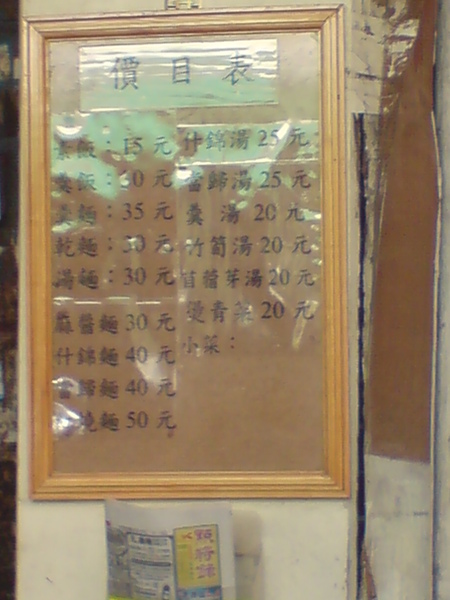 價目表
素飯：15元
羹飯：30元
羹麵：35元
乾麵：30元
湯麵：30元
麻醬麵30元
什錦麵40元
當歸麵40元
燒麵50元
什錦湯25元
當歸湯25元
羹湯20元
竹筍湯20元
苜蓿芽湯20元
燙青菜20元
小菜：